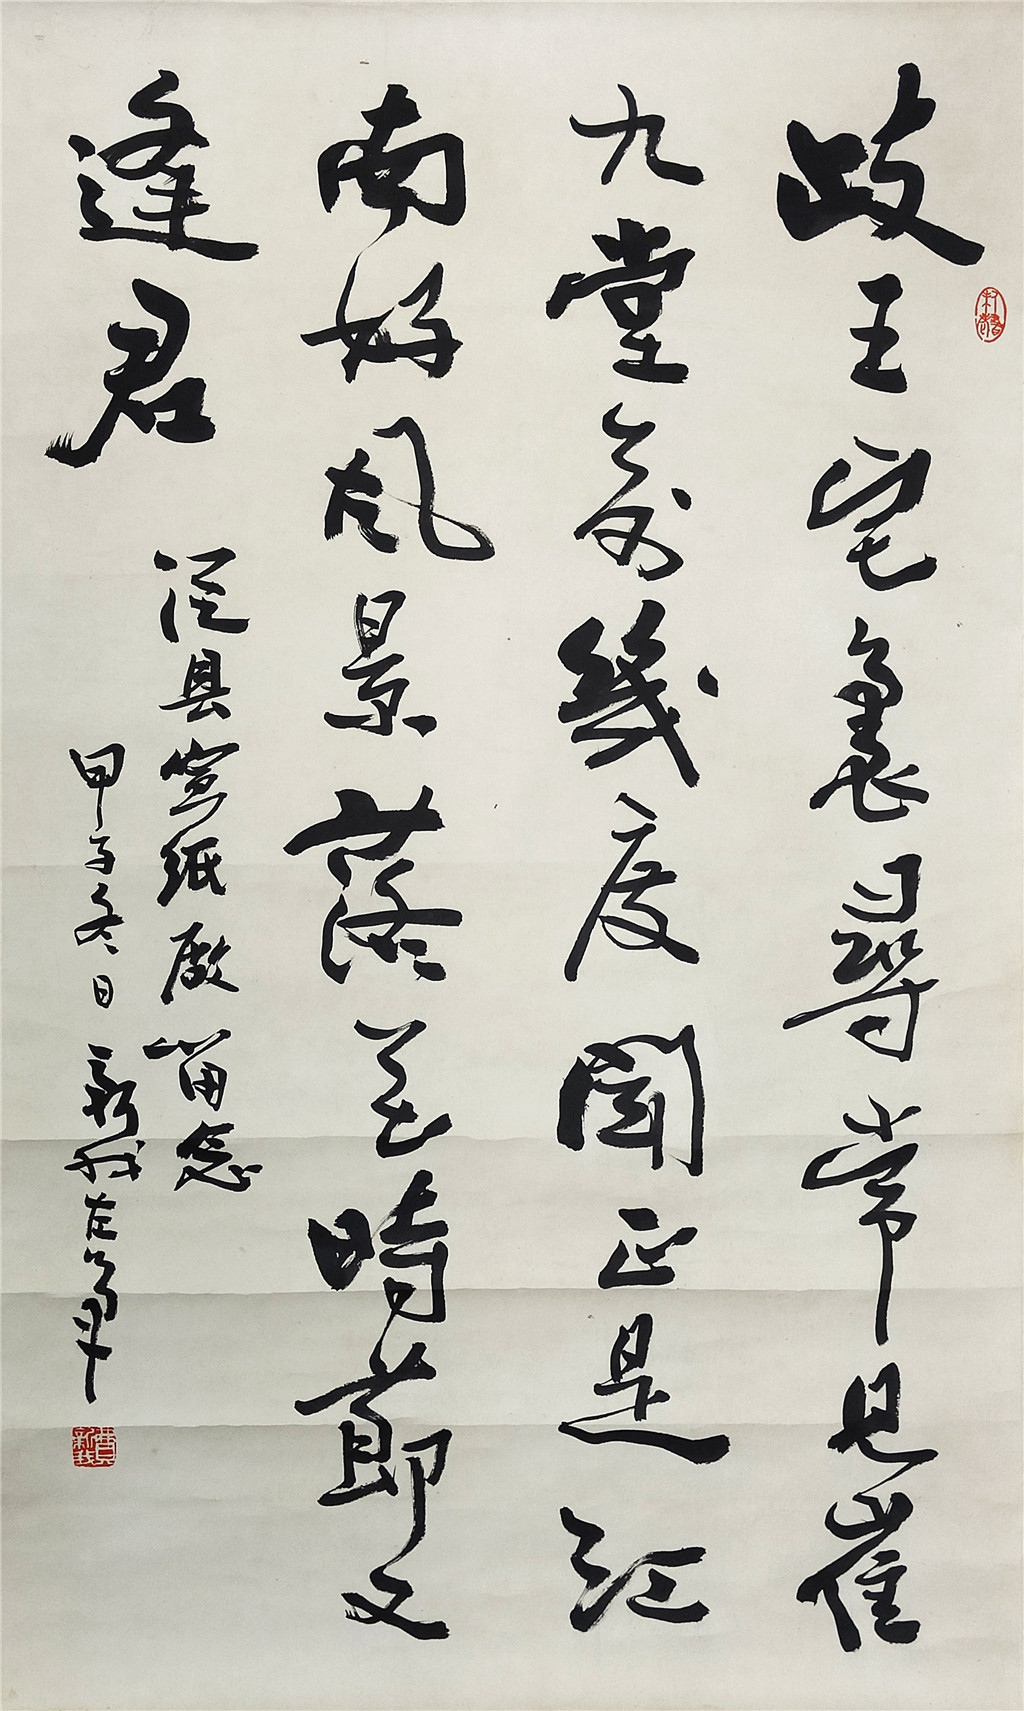 歧王宅裏尋常見崔
九堂前幾度聞正是江
南好風景落花時節又
逢君
泾县宣纸厰留念
甲子冬日新我左筆